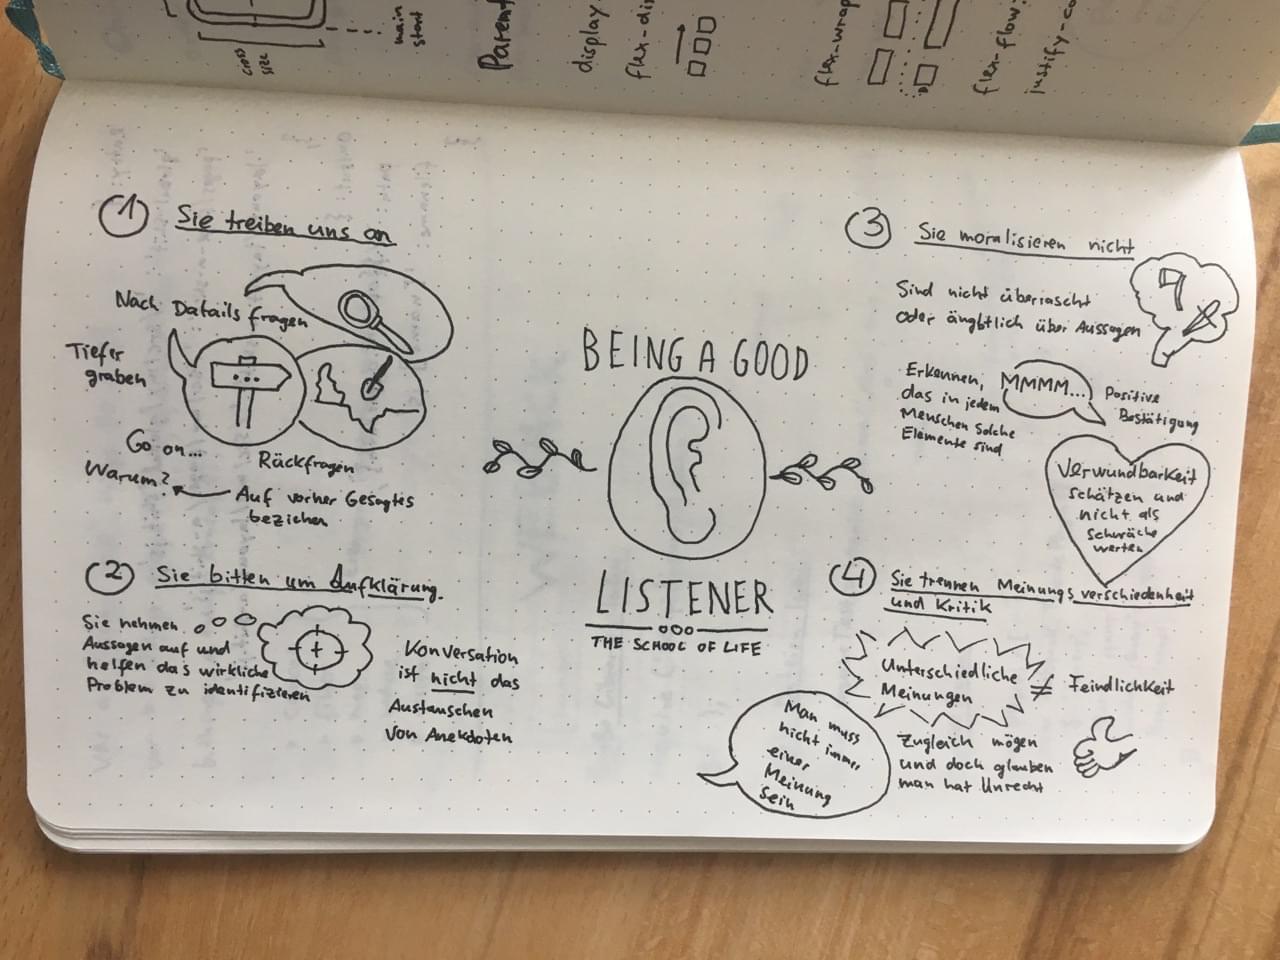 cross
size
main
start
Parent
display
flex-di
flex-wrap
flex-flow:
justify-co
1 Sie treiben uns an
Nach Datails fragen
Tiefer
graben
Go on...
Warum?
Rückfragen
Auf vorher Gesagtes
beziehen
2 Sie bitten um Aufklärung.
Sie nehmen
Aussagen auf und
helfen das wirkliche
Problem zu identifizieren
Konversation
ist nicht das
Austauschen
von Anekdoten
BEING A GOOD
LISTENER
THE SCHOOL OF LIFE
3 Sie moralisieren nicht
Sind nicht überrascht
oder ängbtlich über Aussagen
Erkennen,
das in jedem
Menschen solche
Elemente sind
MMMM...
Positive
Bestätigung
Verwundbarkeit
schätzen und
nicht als
Schwäche
werten
4 Sie trennen Meinungsverschiedenheit
und Kritik
Unterschiedliche
Meinungen
≠ Feindlichkeit
Man muss
nicht immer
einer
Meinung
sein
Zugleich mögen
und doch glauben
man hat Unrecht